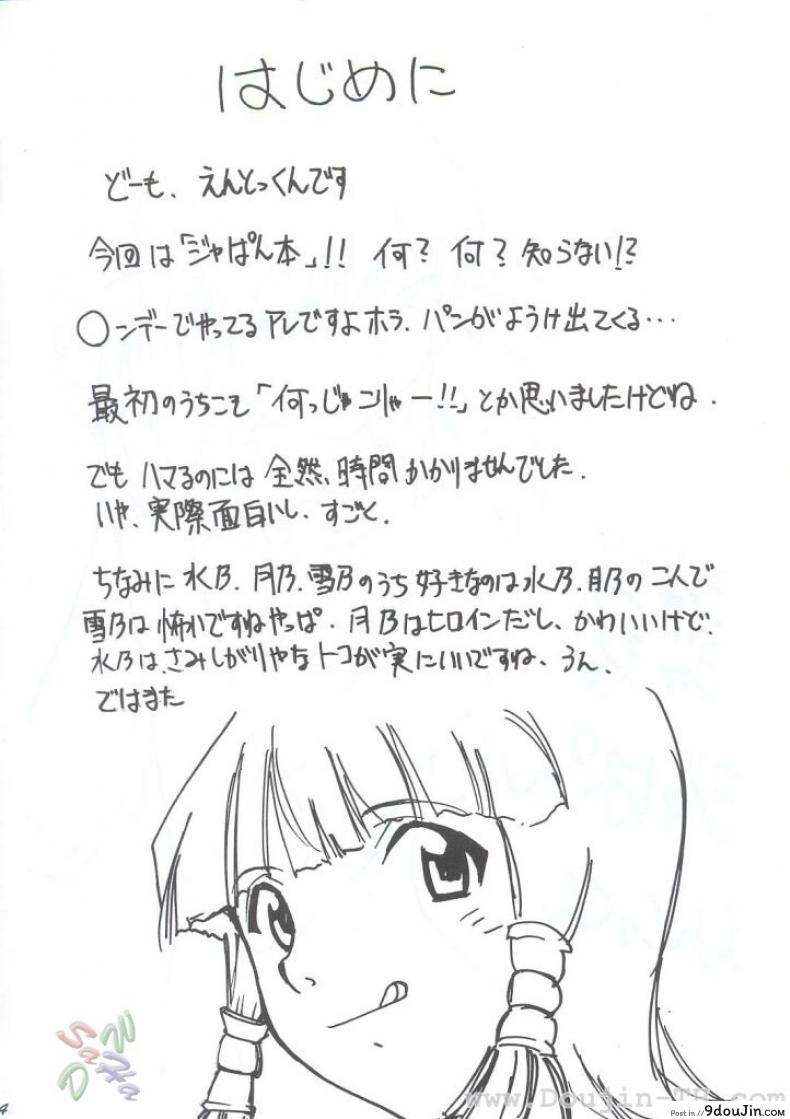 はじめに
どーも、えんとっくんです
今回は「ジャぱん本」!! 何? 何? 知らない!?
○ンデーでやってるアレですよホラ、パンがようけ出てくる…
最初のうちこそ「何っじゃこりゃー!!」とか思いましたけどね.
でもハマるのには全然、時間かかりませんでした.
いや、実際面白いし、すごく.
ちなみに水乃.月乃.雪乃のうち好きなのは水乃.月乃の二人で
雪乃は怖いですねやっぱ.月乃はヒロインだし、かわいいけど.
水乃は、さみしがりやなトコが実にいいですね、うん.
ではまた
www.Doujin-TH.com
Post in // 9douJin.com
4